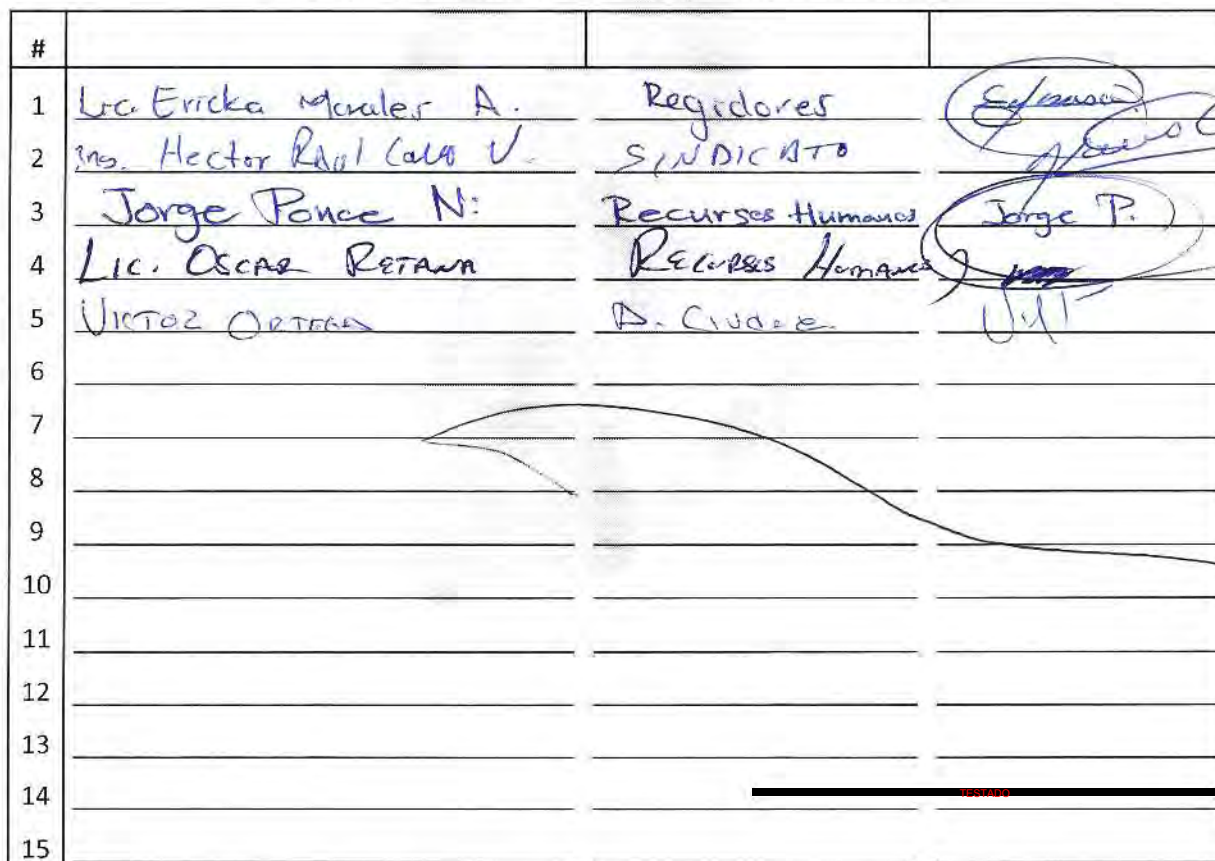 #
1 Lic. Ericka Morales A. Regidores
2 Ing. Hector Raul Calvo V. SINDICATO
3 Jorge Ponce N: Recursos Humanos Jorge P.
4 LIC. OSCAR RETANA RECURSOS HUMANOS
5 VICTOR ORTEGA
6
7
8
9
10
11
12
13
14 TESTADO
15